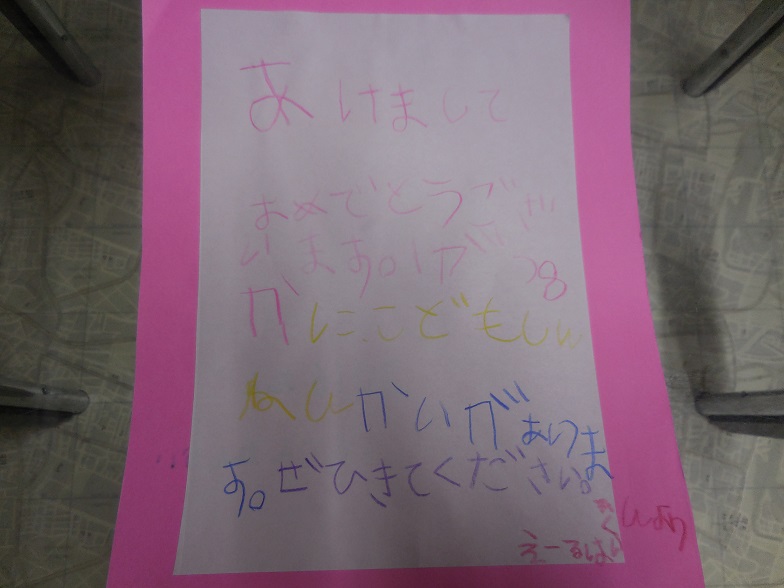 あけまして
おめでとうござ
います。1がつ8
かにこどもしん
ねんかいがあけま
す。ぜひきてください。
えーるはくより